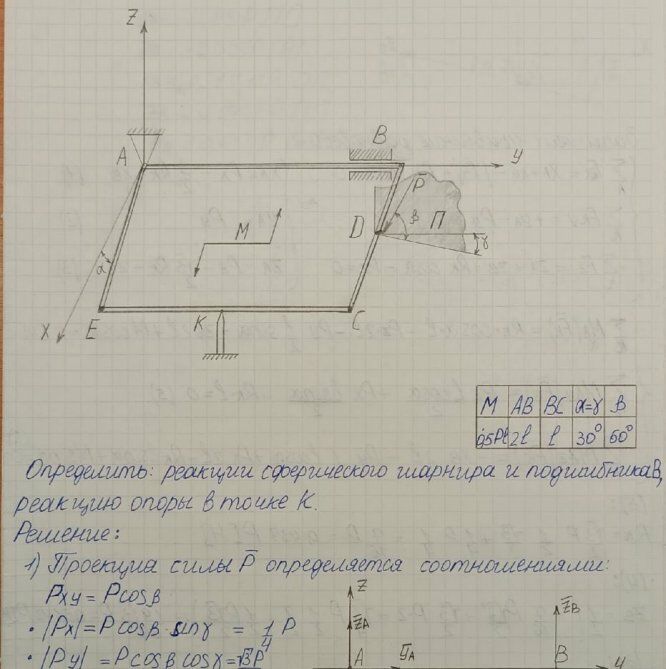 Z
A
B
y
P̄
M
D
β
П
γ
α
X
E
K
C
M AB BC α=γ β
0,5Pl 2l l 30° 60°
Определить: реакции сферического шарнира и подшибникаВ,
реакцию опоры в точке К.
Решение:
1) Проекция силы P̄ определяется соотношениями:
Pxy = P cosβ
• |Px| = P cosβ · sinγ = 1/4 P
• |Py| = P cosβ cosγ = √3P
Z
Z̄A
Z̄B
ȳA
A
B
y